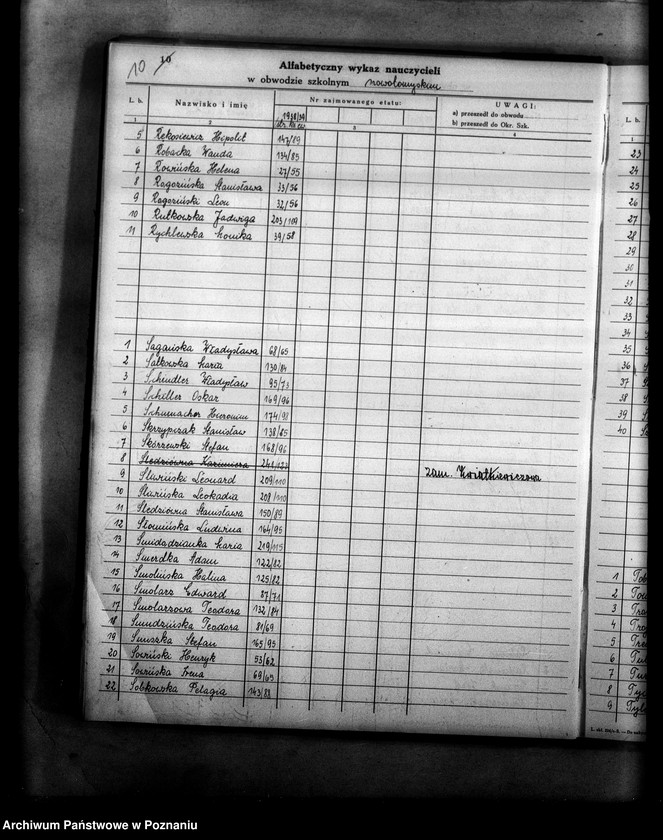 10 10
Alfabetyczny wykaz nauczycieli
w obwodzie szkolnym nowotomyskim
L. b. Nazwisko i imię Nr zajmowanego etatu: UWAGI:
a) przeszedł do obwodu
b) przeszedł do Okr. Szk.
1938/39
1 2 3 4
5 Rękosiewicz Hipolit 147/89
6 Robacka Wanda 134/85
7 Rowińska Helena 27/55
8 Rogozińska Stanisława 33/56
9 Rogoziński Leon 32/56
10 Rutkowska Jadwiga 203/109
11 Rychlewska Monika 39/58
1 Sagańska Władysława 68/65
2 Salkowska Maria 130/84
3 Schendler Władysław 95/73
4 Schiller Oskar 169/96
5 Schumacher Hieronim 174/98
6 Skrzypczak Stanisław 138/85
7 Skórzewski Stefan 168/96
8 Śledziówna Kazimiera zam. Kwiatkiewiczowa
9 Sławiński Leonard 209/110
10 Sławińska Leokadia 208/110
11 Śledziówna Stanisława 150/89
12 Słomińska Ludwina 164/95
13 Maria 219/115
14 Smerdka Adam 122/82
15 Smolińska Halina 125/82
16 Smolarz Edward 87/71
17 Smolarzowa Teodora 132/84
18 Smudzińska Teodora 81/69
19 Smuszka Stefan 165/95
20 Sowiński Henryk 53/62
21 Sowińska Irena 69/65
22 Sobkowska Pelagia 143/88
L. b.
1
23
24
25
26
27
28
29
30
31
32
33
34
35
36
37
38
39
40
1
2
3
4
5
6
7
8
9
Archiwum Państwowe w Poznaniu